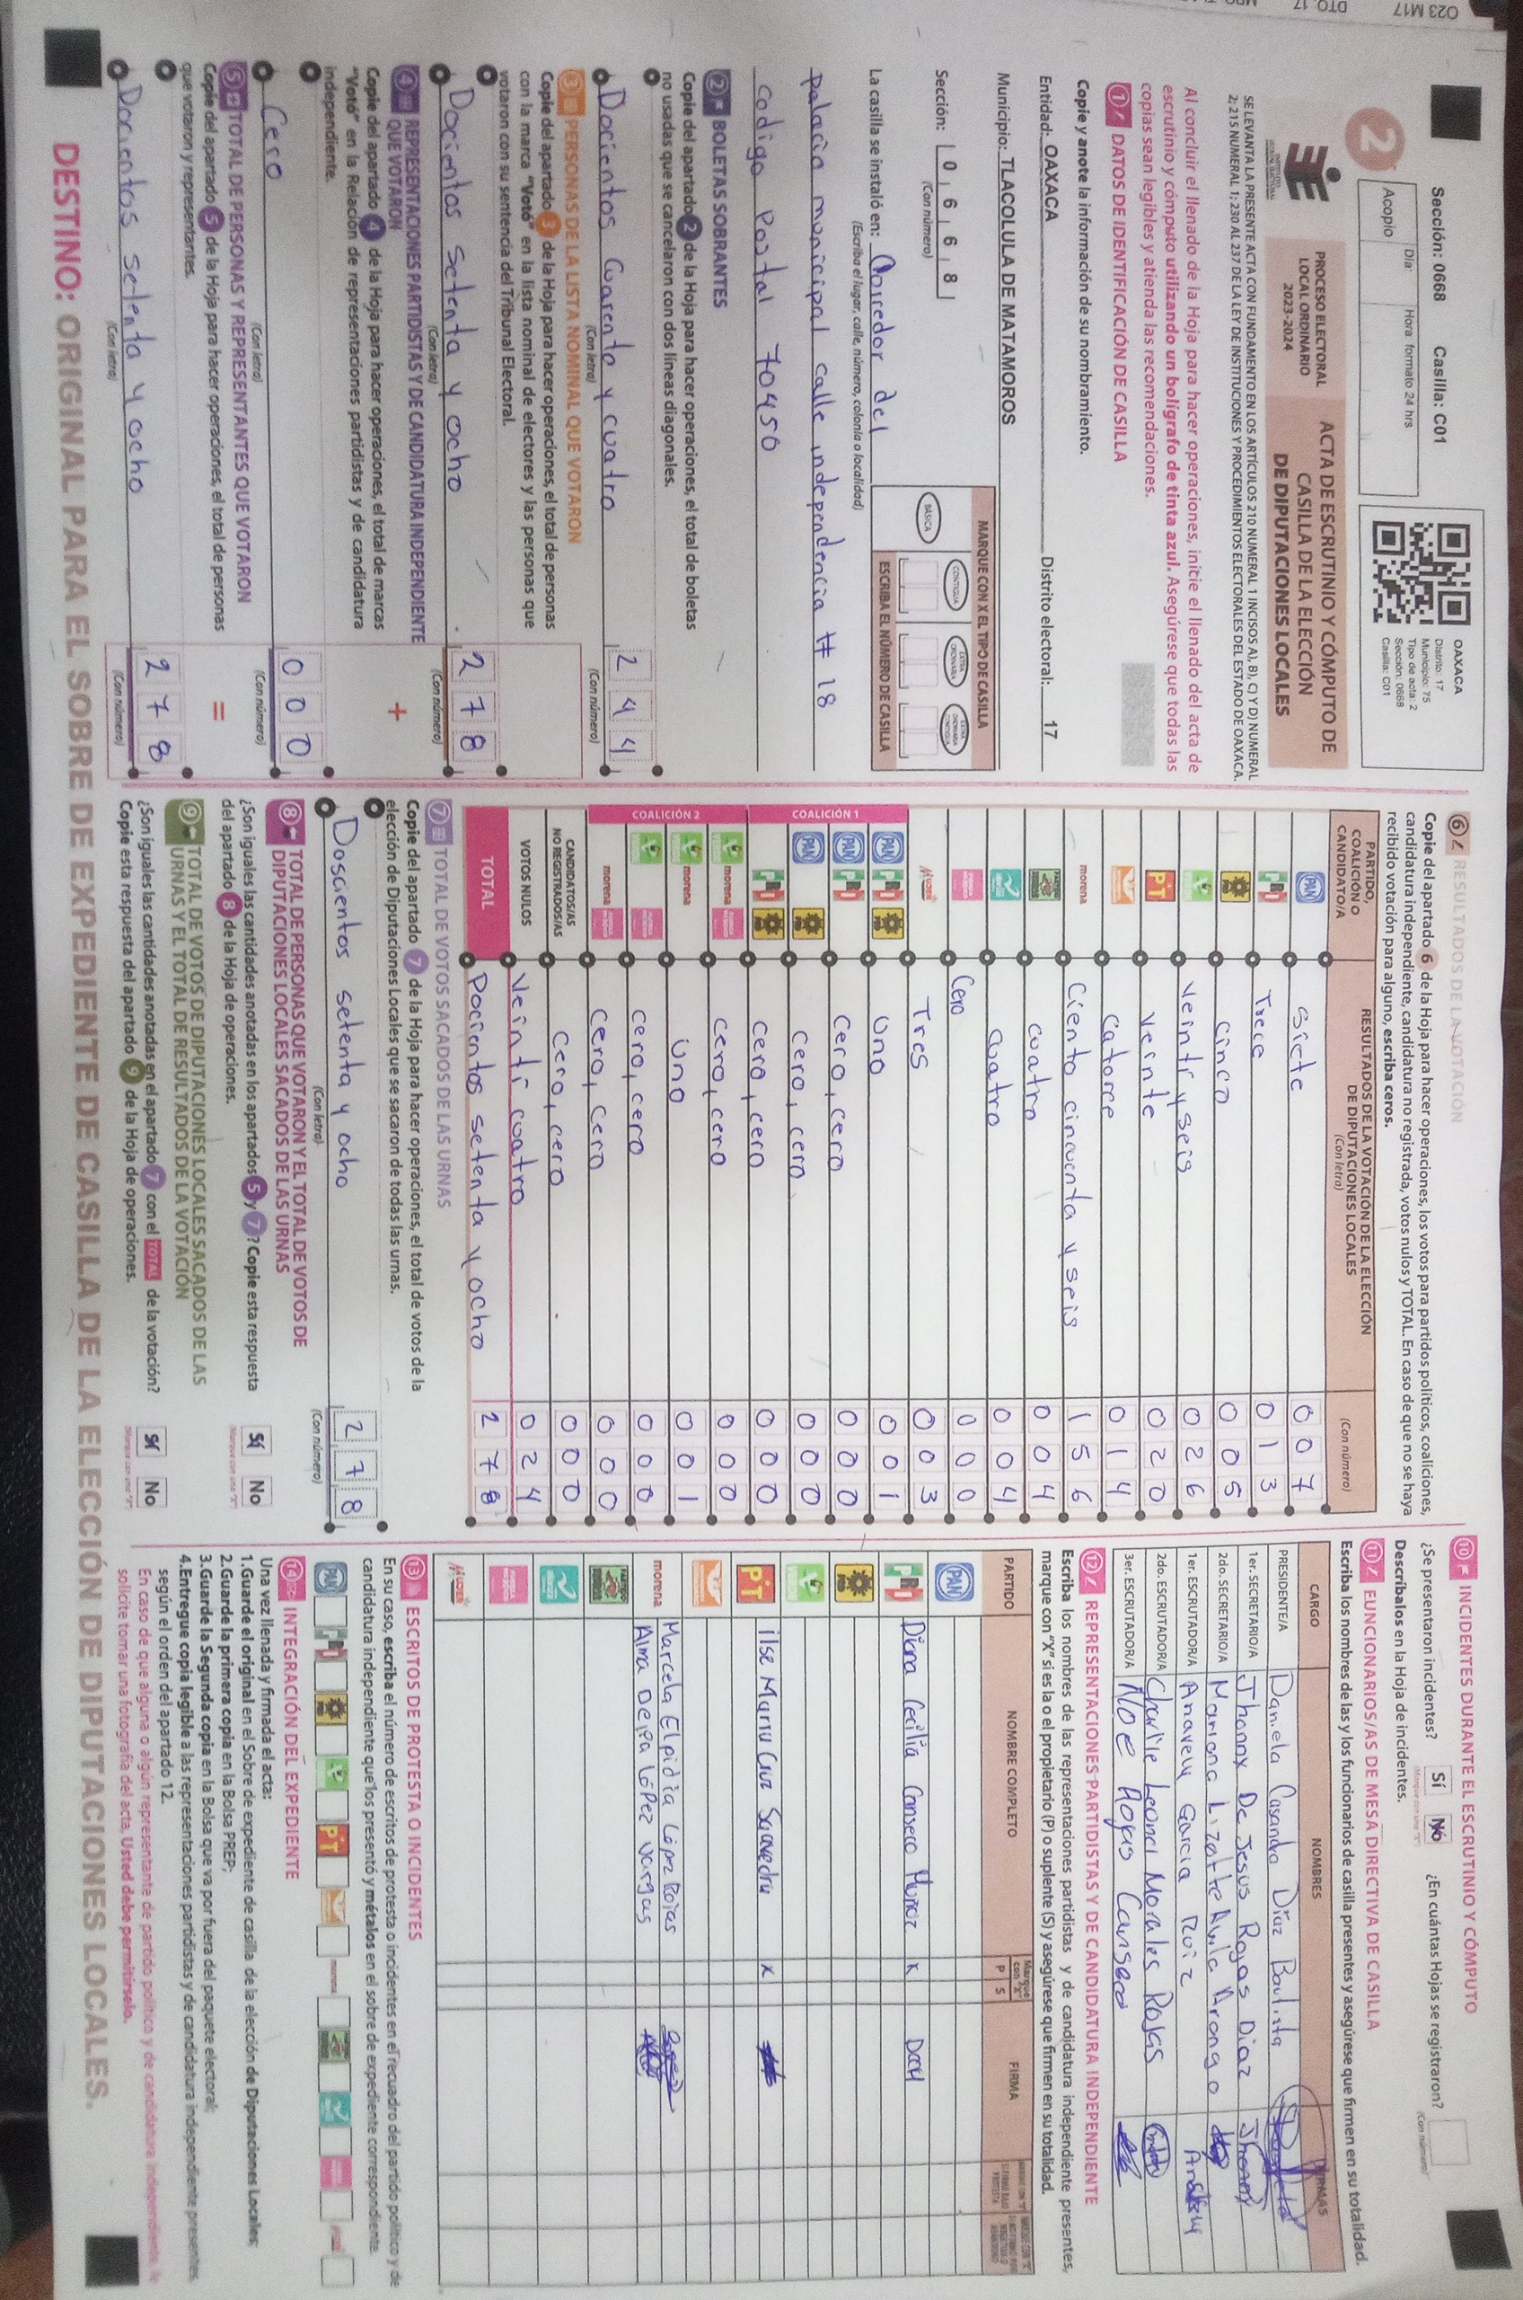 O23 M17
DTO. 17
Sección: 0668 Casilla: C01
2
Día:
Hora formato 24 hrs
Acopio
OAXACA
Distrito: 17
Municipio: 75
Tipo de acta: 2
Sección: 0668
Casilla: C01
PROCESO ELECTORAL
LOCAL ORDINARIO
2023-2024
ACTA DE ESCRUTINIO Y CÓMPUTO DE
CASILLA DE LA ELECCIÓN
DE DIPUTACIONES LOCALES
SE LEVANTA LA PRESENTE ACTA CON FUNDAMENTO EN LOS ARTÍCULOS 210 NUMERAL 1 INCISOS A), B), C) Y D) NUMERAL
2; 215 NUMERAL 1; 230 AL 237 DE LA LEY DE INSTITUCIONES Y PROCEDIMIENTOS ELECTORALES DEL ESTADO DE OAXACA.
Al concluir el llenado de la Hoja para hacer operaciones, inicie el llenado del acta de
escrutinio y cómputo utilizando un bolígrafo de tinta azul. Asegúrese que todas las
copias sean legibles y atienda las recomendaciones.
1 DATOS DE IDENTIFICACIÓN DE CASILLA
Copie y anote la información de su nombramiento.
Entidad: OAXACA Distrito electoral: 17
Municipio: TLACOLULA DE MATAMOROS
Sección: 0 6 6 8
(Con número)
MARQUE CON X EL TIPO DE CASILLA
BÁSICA
CONTIGUA
EXTRA ORDINARIA
EXTRA ORDINARIA CONTIGUA
ESCRIBA EL NÚMERO DE CASILLA
La casilla se instaló en: Corredor del
(Escriba el lugar, calle, número, colonia o localidad)
palacio municipal calle independencia # 18
codigo Postal 70450
2 BOLETAS SOBRANTES
Copie del apartado 2 de la Hoja para hacer operaciones, el total de boletas
no usadas que se cancelaron con dos líneas diagonales.
Docientos Cuarenta y cuatro 2 4 4
(Con letra) (Con número)
3 PERSONAS DE LA LISTA NOMINAL QUE VOTARON
Copie del apartado 3 de la Hoja para hacer operaciones, el total de personas
con la marca "Votó" en la lista nominal de electores y las personas que
votaron con su sentencia del Tribunal Electoral.
Docientos setenta y ocho 2 7 8
(Con letra) (Con número)
4 REPRESENTACIONES PARTIDISTAS Y DE CANDIDATURA INDEPENDIENTE
QUE VOTARON
Copie del apartado 4 de la Hoja para hacer operaciones, el total de marcas
"Votó" en la Relación de representaciones partidistas y de candidatura
independiente.
+
Cero 0 0 0
(Con letra) (Con número)
5 TOTAL DE PERSONAS Y REPRESENTANTES QUE VOTARON
Copie del apartado 5 de la Hoja para hacer operaciones, el total de personas
que votaron y representantes.
=
Docientos setenta y ocho 2 7 8
(Con letra) (Con número)
6 RESULTADOS DE LA VOTACIÓN
Copie del apartado 6 de la Hoja para hacer operaciones, los votos para partidos políticos, coaliciones,
candidatura independiente, candidatura no registrada, votos nulos y TOTAL. En caso de que no se haya
recibido votación para alguno, escriba ceros.
PARTIDO,
COALICIÓN O
CANDIDATO/A
RESULTADOS DE LA VOTACIÓN DE LA ELECCIÓN
DE DIPUTACIONES LOCALES
(Con letra)
(Con número)
PAN siete 0 0 7
PRI Trece 0 1 3
PRD cinco 0 0 5
Veinti y seis 0 2 6
PT veinte 0 2 0
Catorce 0 1 4
morena Ciento cincuenta y seis 1 5 6
cuatro 0 0 4
cuatro 0 0 4
Cero 0 0 0
MUJER Tres 0 0 3
COALICIÓN 1
PAN PRI PRD uno 0 0 1
PAN PRI Cero, cero 0 0 0
PAN PRD cero, cero 0 0 0
PRI PRD cero, cero 0 0 0
COALICIÓN 2
morena cero, cero 0 0 0
morena uno 0 0 1
cero, cero 0 0 0
morena cero, cero 0 0 0
CANDIDATOS/AS
NO REGISTRADOS/AS
Cero, cero 0 0 0
VOTOS NULOS Veinti cuatro 0 2 4
TOTAL Docientos setenta y ocho 2 7 8
7 TOTAL DE VOTOS SACADOS DE LAS URNAS
Copie del apartado 7 de la Hoja para hacer operaciones, el total de votos de la
elección de Diputaciones Locales que se sacaron de todas las urnas.
Doscientos setenta y ocho 2 7 8
(Con letra) (Con número)
8 TOTAL DE PERSONAS QUE VOTARON Y EL TOTAL DE VOTOS DE
DIPUTACIONES LOCALES SACADOS DE LAS URNAS
¿Son iguales las cantidades anotadas en los apartados 5 y 7? Copie esta respuesta
del apartado 8 de la Hoja de operaciones.
Sí No
9 TOTAL DE VOTOS DE DIPUTACIONES LOCALES SACADOS DE LAS
URNAS Y EL TOTAL DE RESULTADOS DE LA VOTACIÓN
¿Son iguales las cantidades anotadas en el apartado 7 con el TOTAL de la votación?
Copie esta respuesta del apartado 9 de la Hoja de operaciones.
Sí No
10 INCIDENTES DURANTE EL ESCRUTINIO Y CÓMPUTO
¿Se presentaron incidentes? Sí No ¿En cuántas Hojas se registraron?
(Con número)
Descríbalos en la Hoja de incidentes.
11 FUNCIONARIOS/AS DE MESA DIRECTIVA DE CASILLA
Escriba los nombres de las y los funcionarios de casilla presentes y asegúrese que firmen en su totalidad.
CARGO NOMBRES FIRMAS
PRESIDENTE/A Daniela Casandra Díaz Bautista
1er. SECRETARIO/A Jhonny De Jesus Rojas Diaz Jhonny
2do. SECRETARIO/A Mariana Lizatte Avila Arango
1er. ESCRUTADOR/A Anavely Garcia Ruiz
2do. ESCRUTADOR/A Charlie Leonel Morales Rojas
3er. ESCRUTADOR/A Noe Rojas Cansero
12 REPRESENTACIONES PARTIDISTAS Y DE CANDIDATURA INDEPENDIENTE
Escriba los nombres de las representaciones partidistas y de candidatura independiente presentes,
marque con "X" si es la o el propietario (P) o suplente (S) y asegúrese que firmen en su totalidad.
PARTIDO NOMBRE COMPLETO Marque con "X" P S FIRMA
PAN
PRI Diana Cecilia Cansero Muñoz x DCCM
PRD
PT ilse Maria Cruz Saavedra x
morena Marcela Elpidia López Rojas
Alma Delia López Vargas
MUJER
13 ESCRITOS DE PROTESTA O INCIDENTES
En su caso, escriba el número de escritos de protesta o incidentes en el recuadro del partido político y de
candidatura independiente que los presentó y métalos en el sobre de expediente correspondiente.
PAN PRI PRD PT morena
14 INTEGRACIÓN DEL EXPEDIENTE
Una vez llenada y firmada el acta:
1. Guarde el original en el Sobre de expediente de casilla de la elección de Diputaciones Locales;
2. Guarde la primera copia en la Bolsa PREP;
3. Guarde la Segunda copia en la Bolsa que va por fuera del paquete electoral;
4. Entregue copia legible a las representaciones partidistas y de candidatura independiente presentes,
según el orden del apartado 12.
En caso de que alguna o algún representante de partido político y de candidatura independiente, le
solicite tomar una fotografía del acta, Usted debe permitírselo.
DESTINO: ORIGINAL PARA EL SOBRE DE EXPEDIENTE DE CASILLA DE LA ELECCIÓN DE DIPUTACIONES LOCALES.